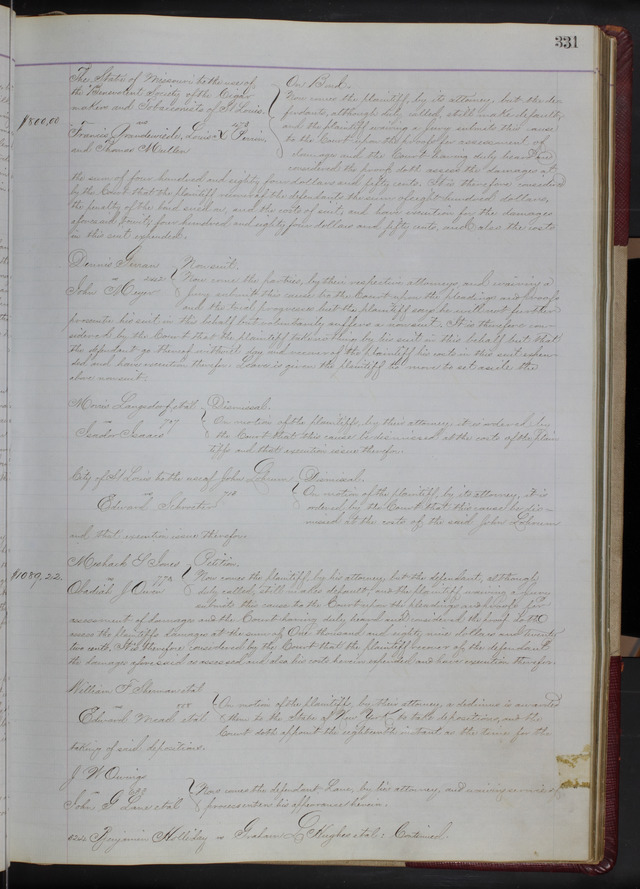 331
The State of Missouri to the use of
the Benevolent Society of the Cigar
makers and Tobacconists of St Louis.
$800.00
vs
and Thomas Mullen
On Bond.
Now comes the plaintiff, by its attorney, but the de-
fendants, although duly called, still make default,
and the plaintiff waiving a jury submits this cause
to the Court upon the proofs for assessment of
damages and the Court having duly heard and
considered the proofs doth assess the damages at
the sum of four hundred and eighty four dollars and fifty cents. It is therefore considered
by the Court that the plaintiff recover of the defendants the sum of eight hundred dollars,
the penalty of the bond sued on, and the costs of suit, and have execution for the damages
aforesaid, to wit, four hundred and eighty four dollars and fifty cents, and also the costs
in this suit expended.
Dennis
vs
John Meyer
Nonsuit.
Now come the parties, by their respective attorneys, and waiving a
jury submit this cause to the Court upon the pleadings and proofs
and the trial progresses but the plaintiff says he will not further
prosecute his suit in this behalf but voluntarily suffers a nonsuit. It is therefore con-
sidered by the Court that the plaintiff take nothing by his suit in this behalf but that
the defendant go thereof without day and recover of the plaintiff his costs in this suit expen-
ded and have execution therefor. Leave is given the plaintiff to move to set aside the
above nonsuit.
Morris Langsdorf et al
vs
Isador Isaacs
Dismissal.
On motion of the plaintiffs, by their attorney, it is ordered by
the Court that this cause be dismissed at the costs of the plain-
tiffs and that execution issue therefor.
City of St Louis to the use of John
vs
Edward Schroeter
Dismissal.
On motion of the plaintiff, by its attorney, it is
ordered by the Court that this cause be dis-
missed at the costs of the said John
and that execution issue therefor.
Meshack S Jones
vs
Obadiah J Owen
$1089.22
Petition.
Now comes the plaintiff, by his attorney, but the defendant, although
duly called, still makes default, and the plaintiff waiving a jury
submits this cause to the Court upon the pleadings and proofs for
assessment of damages and the Court having duly heard and considered the proofs doth
assess the plaintiff's damages at the sum of One thousand and eighty nine dollars and twenty
two cents. It is therefore considered by the Court that the plaintiff recover of the defendant
the damages aforesaid as assessed and also his costs herein expended and have execution therefor.
William T Sherman et al
vs
Edward Mead et al
On motion of the plaintiffs, by their attorney, a dedimus is awarded
them to the State of New York to take depositions, and the
Court doth appoint the eighteenth instant as the time for the
taking of said depositions.
J W Owings
vs
John G Lane et al
Now comes the defendant Lane, by his attorney, and waiving service of
process enters his appearance herein.
Benjamin Holliday vs Graham L Hughes et al: Continued.